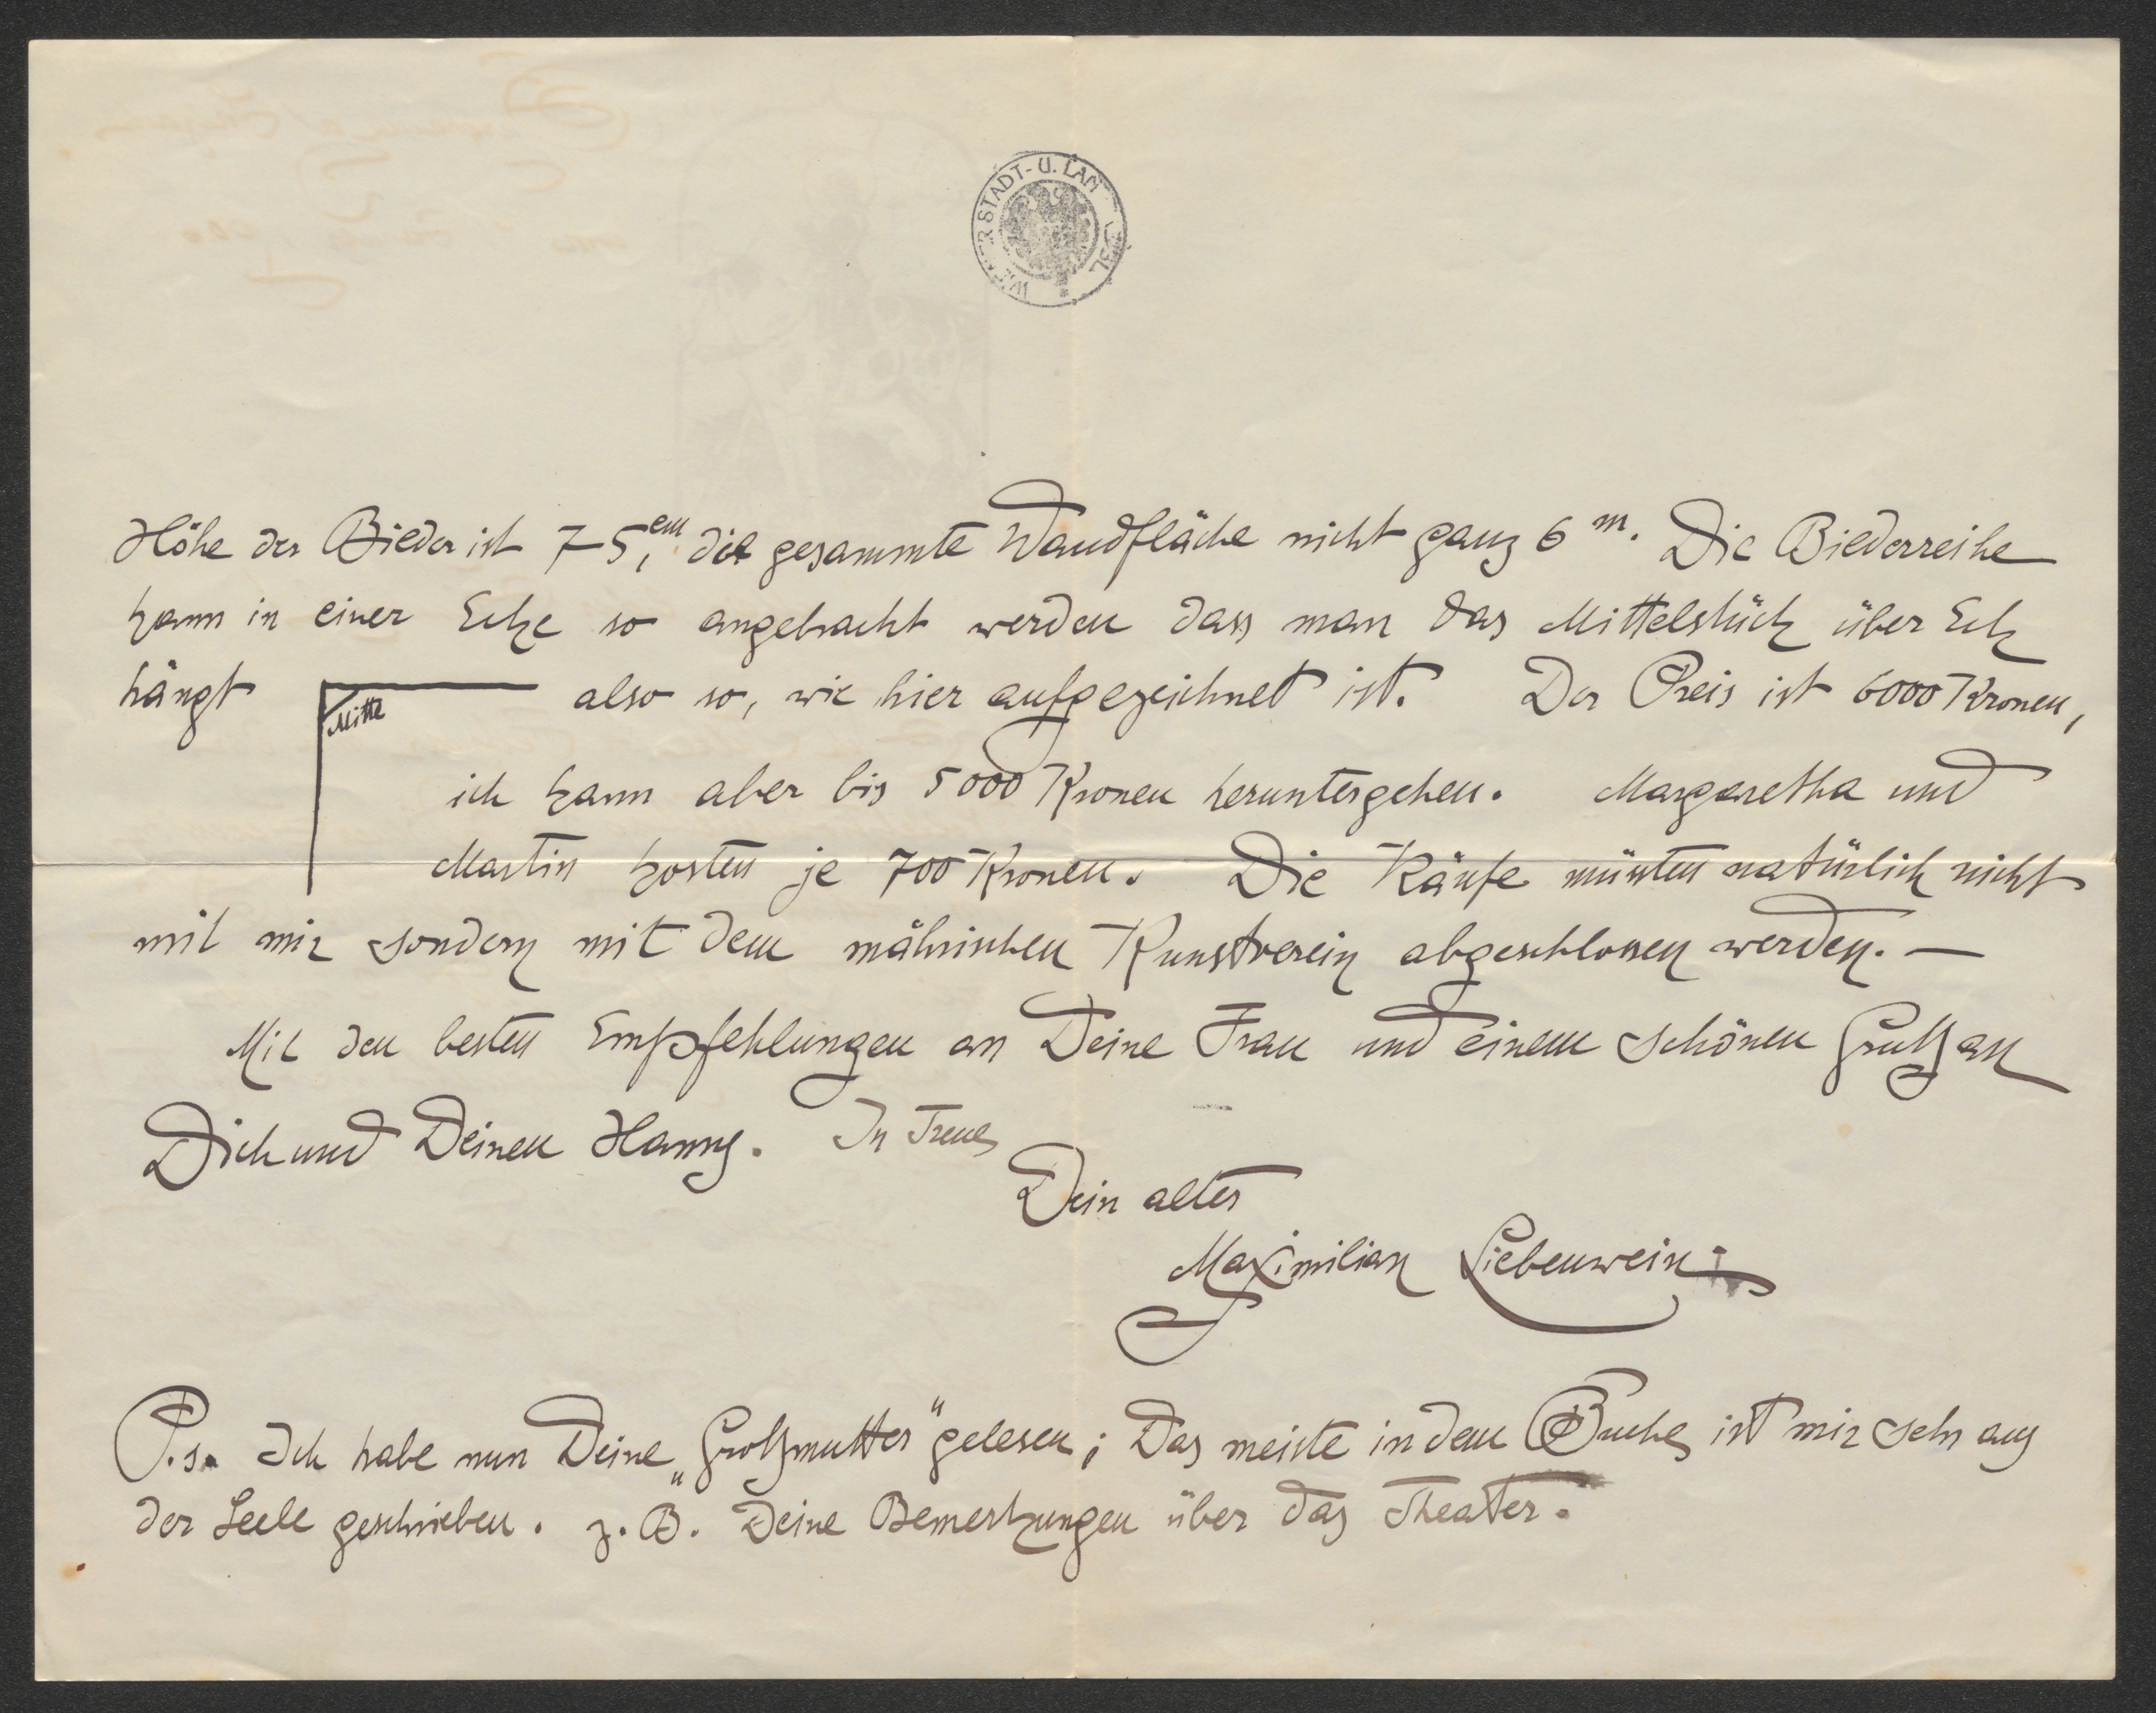 WIENER STADT- U. LAN BIBL
Höhe der Bieder ist 75 cm, die gesammte Wandfläche nicht ganz 6 m. Die Biederreihe
kann in einer Ecke so angebracht werden dass man das Mittelstück über Eck
hängt Mitte also so, wie hier aufgezeichnet ist. Der Preis ist 6000 Kronen,
ich kann aber bis 5000 Kronen heruntergehen. Margaretha und
Martin kosten je 700 Kronen. Die Käufe müssten natürlich nicht
mit mir sondern mit dem mährischen Kunstverein abgeschlossen werden. —
Mit den besten Empfehlungen an Deine Frau und einem schönen Gruß an
Dich und Deinen Hanns. In Treue
Dein alter
Maximilian Liebenwein
P.s. Ich habe nun Deine „Großmutter“ gelesen; Das meiste in dem Buche ist mir sehr aus
der Seele geschrieben. z. B. Deine Bemerkungen über das Theater.